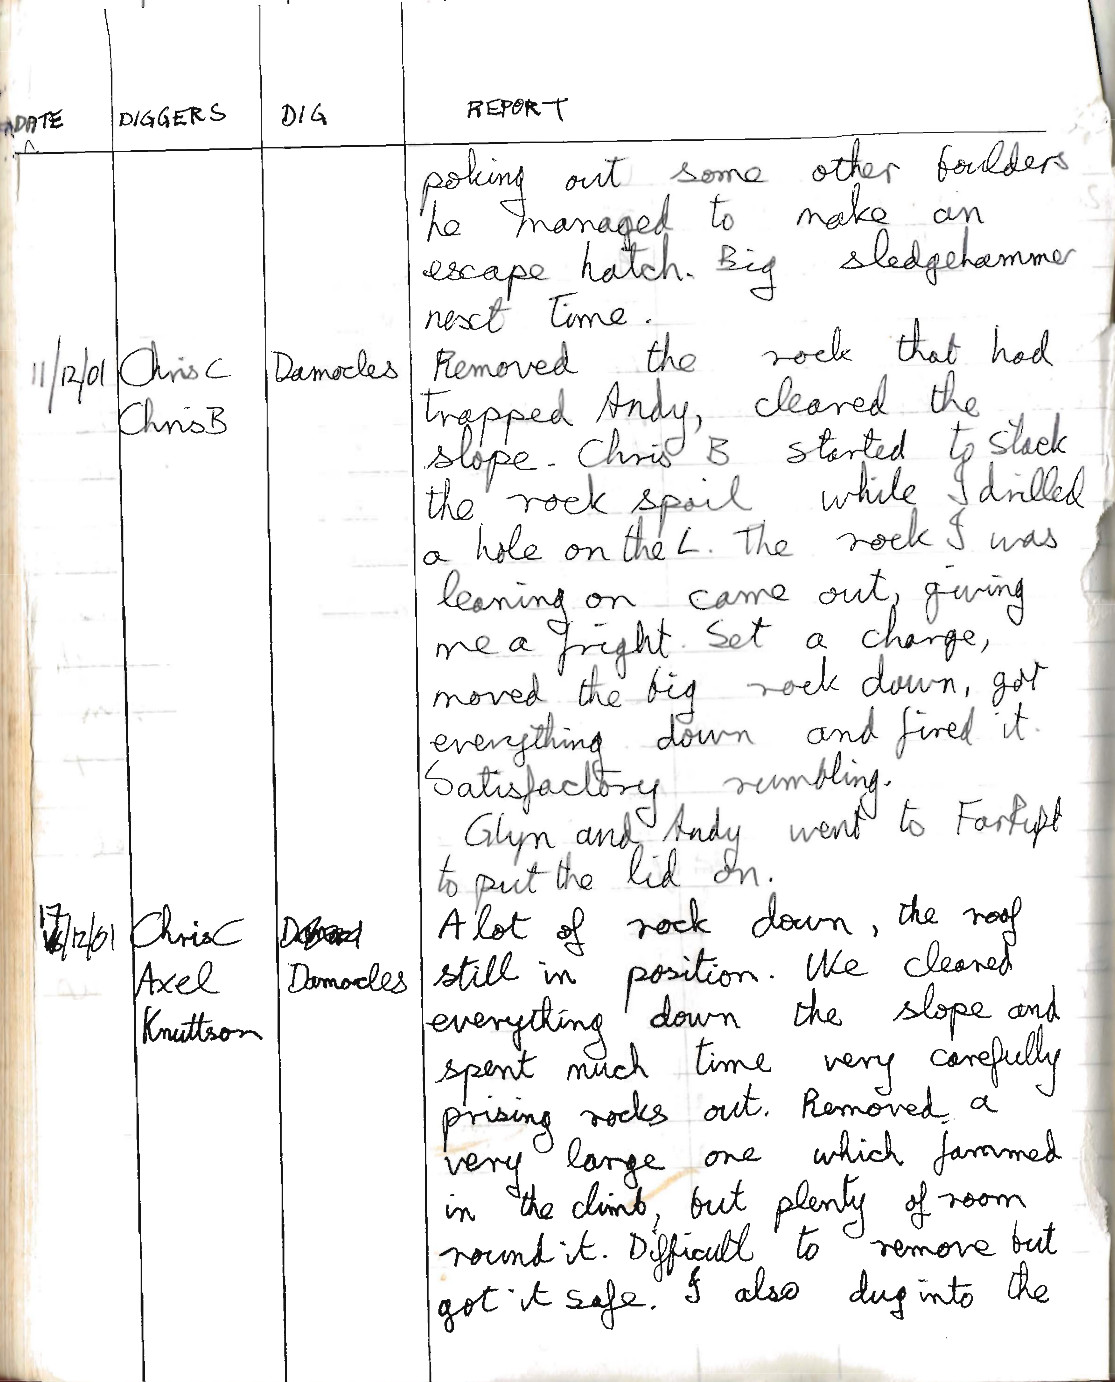 DATE DIGGERS DIG REPORT
poking out some other boulders
he managed to make an
escape hatch. Big sledgehammer
next time.
11/12/01 Chris C Damocles Removed the rock that had
Chris B trapped Andy, cleared the
slope. Chris B started to stack
the rock spoil while I drilled
a hole on the L. The rock I was
leaning on came out, giving
me a fright. Set a charge,
moved the big rock down, got
everything down and fired it.
Satisfactory rumbling.
Glyn and Andy went to
to put the lid on.
17/12/01 Chris C A lot of rock down, the roof
Axel Damocles still in position. We cleared
Knuttson everything down the slope and
spent much time very carefully
prising rocks out. Removed a
very large one which jammed
in the climb, but plenty of room
round it. Difficult to remove but
got it safe. I also dug into the